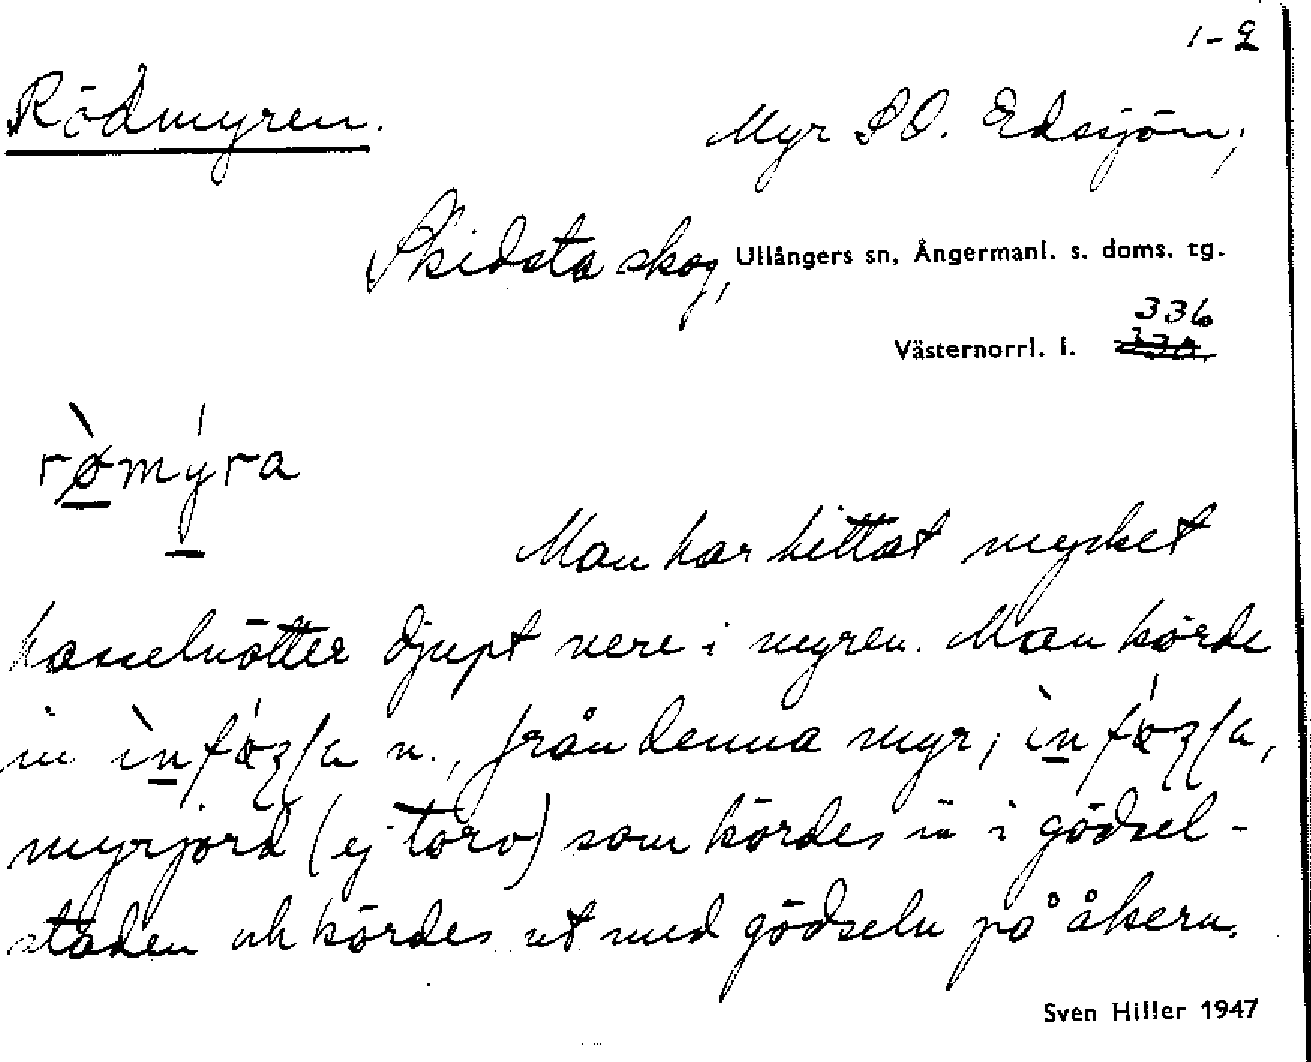 1-2
Rödmyren.
Myr SO. Edsjön,
Skidsta skog, Ullångers sn, Ångermanl. s. doms. tg.
336
Västernorrl. l.
rø̀mýra
Man har hittat mycket
hasselnötter djupt nere i myren. Man körde
in n., från denna myr;
myrjord (ej torv) som kördes in i gödsel-
staden och kördes ut med gödseln på åkern.
Sven Hiller 1947